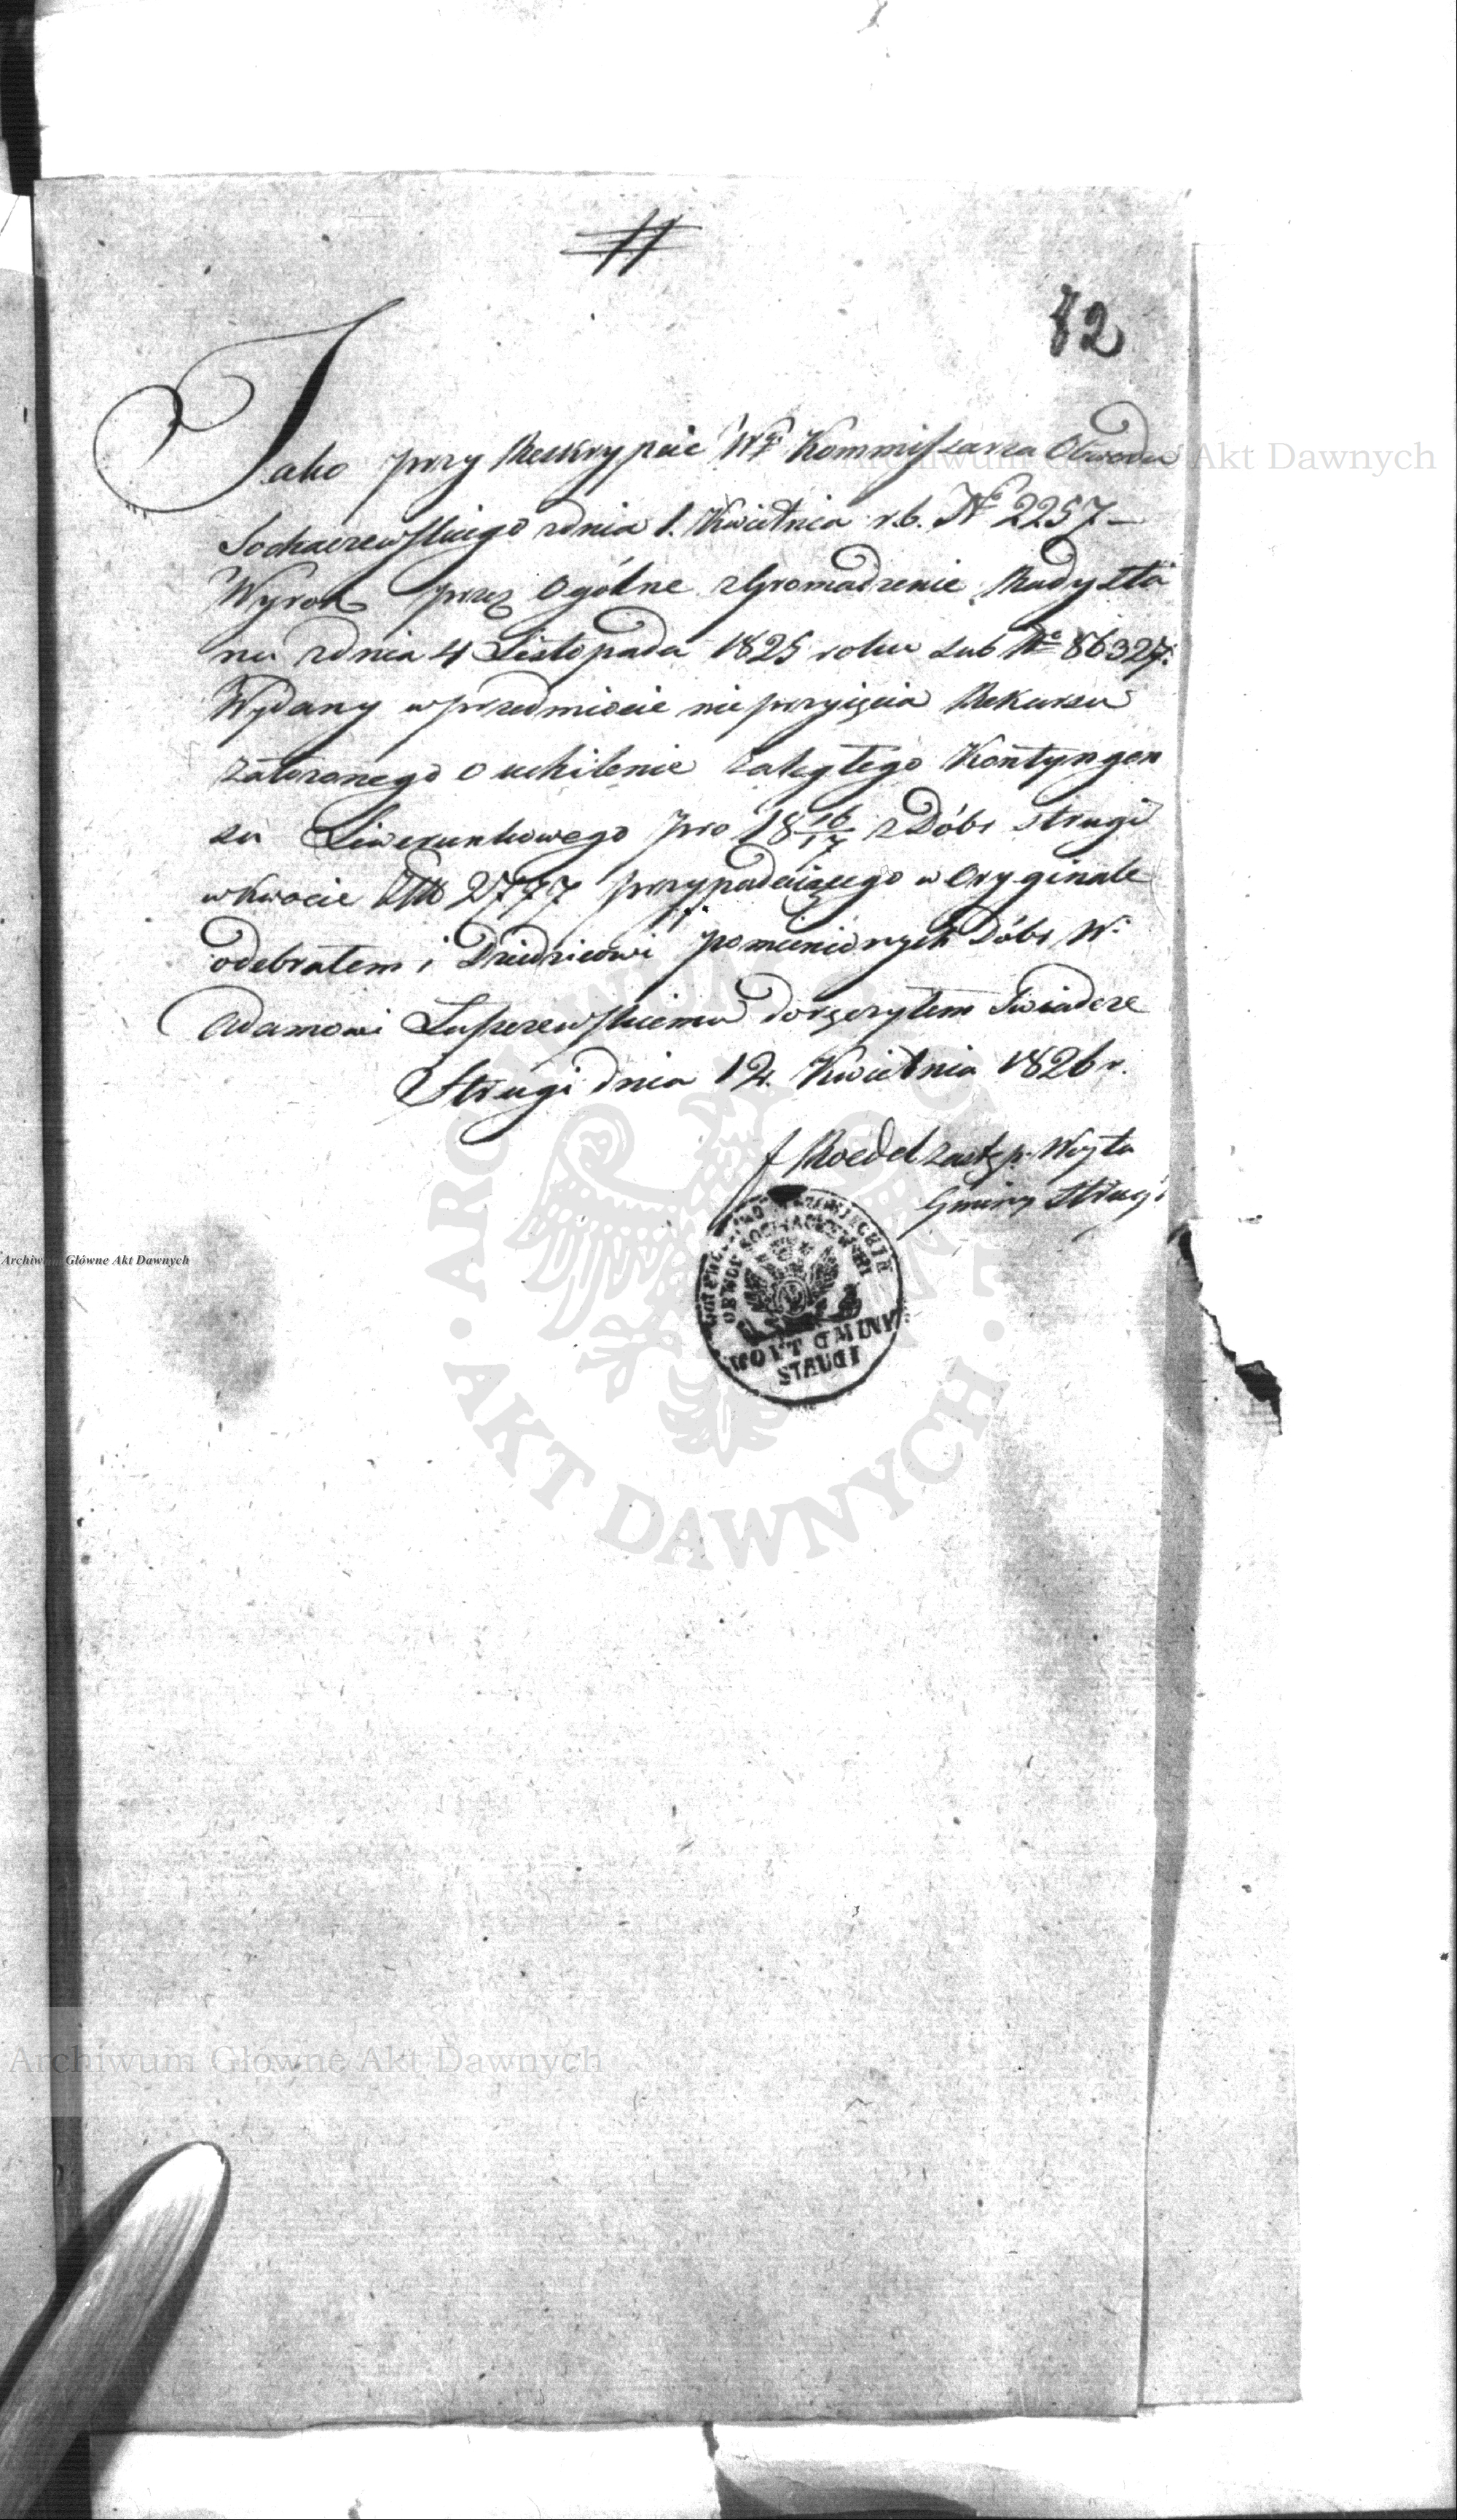 #
82
Jako przy Reskrypcie Wgo Kommissarza Obwodu
Sochaczewskiego zdnia 1. Kwietnia r.b. No 2257 –
Wyrok przez Ogólne zgromadzenie Rady Sta
nu zdnia 4 Listopada 1825 roku Sub No 86327.
Wydany w przedmiocie nieprzyięcia Rekursu
założonego o uchilenie zaległego Kontyngen
su Liwerunkowego pro 18 16/17 z Dóbr Strugi
w kwocie 2777 przypadaiącego w Oryginale
odebrałem i Dziedzicowi pomienionych Dóbr W.
Adamowi Łuszczewskiemu doręczyłem Świadczę
Strugi dnia 12. Kwietnia 1826 r.
f Roedel zastęp. Woyta
Gminy Strugi
WOIEWODZTWO MAZOWIECKIE
OBWOD SOCHACZEWSKI
WOYT GMINY
STRUGI
Archiwum Główne Akt Dawnych
Archiwum Główne Akt Dawnych
Archiwum Główne Akt Dawnych
ARCHIWUM GŁÓWNE · AKT DAWNYCH ·